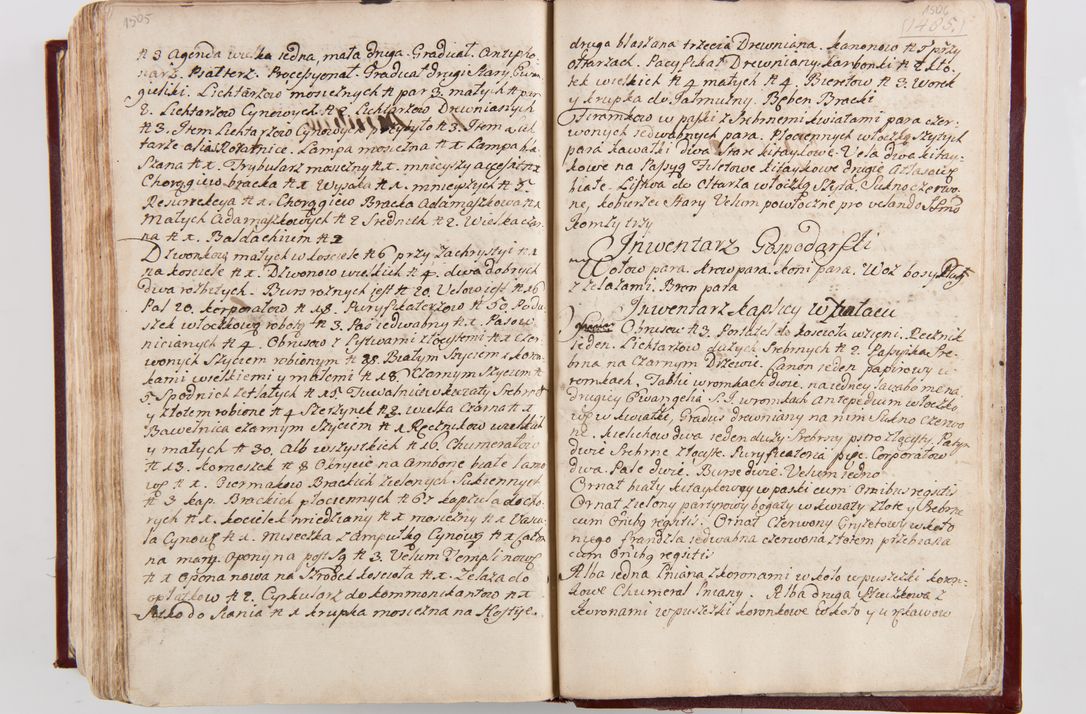 1505
# 3 Agenda wielka iedna, mała druga. Graduał. Antipho-
narz. Psałterz. Procesyonał. Graduał drugi Stary. Ewan-
gieliki. Lichtarzow mosiężnych # par 3. małych # par
2. Lichtarzow Cynowych # 2 Lichtarzow Drewnianych
# 3. Item Lichtarzow Cynowych przybyło # 3. Item
tarze alia Rotatnice. Lampa mosiężna # 1 Lampa bla
szana # 1. Trybularz mosiężny # 1. mnieyszy
Chorągiew bracka # 1 Wysoka # 1. mnieyszych #
Resurrekcya # 1. Chorągiew Bracka Adamaszkowa # 1
małych Adamaszkowych # 2 Srednich # 2. Wielka czar
na # 1. Baldachium # 2
Dzwonkow małych w kosciele # 6 przy Zachrystyi # 1
na kosciele # 1. Dzwonow wielkich # 4. dwa dobrych
dwa rozbitych. Burs rożnych iest # 20. Velow iest # 16
Pal 20. korporałow # 18. Puryfikaterzow # 50. Podu-
szek włoczkową roboty # 3. Pas iedwabny # 1. Pasow
nicianych # 4. Obrusow z Listwami z Czer-
wonych Szyciem robionym # 35 Białym Szyciem z koro
kami wielkiemi y małemi # 18. Czarnym Szyciem #
5. Spodnich # 15. Tuwalniow kwiaty Srebrne
y złotem robione # 4 Szerzynek # 2. wielka Czarna # 1
Bawełnica czarnym Szyciem # 1 Ręcznikow wielkich
y małych # 30. Alb wszystkich # 16 Chumerałow
# 13. komeszek # 8 Okrycie na Ambonę białe
# 1. Giermakow Brackich Zielonych Sukiennych
# 3 kap. Brackich płociennych # 67 kapłuła do cho-
rych # 1. kociełek miedziany # 1 mosiężny # 1 Vascu-
la Cynow # 1. miseczka z Ampułką Cynow #
na mary. Opony na post # 3. Velum Templi now
# 1 Opona nowa na Szrodek kosciola # 1. Zelaza do
opłatkow # 2. Cyrkularz do kommonikantow # 1
do Stania # 1 krupka mosiężna na Hostye.
1506
(1485)
druga blaszana trzecia Drewniana. kanonow # 5 przy
Ołtarzach. Pacyfikał Drewniany. karbonki #
tek wielkich # 4 małych # 4. Bieretow # 3. Worek
y krupka do Jałmużny. Bęben Bracki
Firankow w paski z Srebrnemi kwiatami para czer-
wonych iedwabnych para. Płociennych włoczką szytych
para kawałki dwa Stare kitaykowe. Vela dwa kitay-
kowe na Filetowe kitaykowe drugie Atłasowe
białe. Listwa do Ołtarza włoczką Szyta. Sukno czerwo-
ne, kobierzec Stary Velum powłoczne pro velando Ssmo
komży trzy
Inwentarz Gospodarski
Wołow para. krow para. koni para. Woz bosy Pług
z zelazami. Bron para
Inwentarz kaplicy w Pałacu
Obrusow # 3. Portatel do kosciola wzięni. Ręcznik
ieden. Lichtarzow dużych Srebrnych # 2. Passyika Sre-
brna na Czarnym Drzewie. Canon ieden papirowy w
romkach. Tablic w romkach dwie, na iedney lavabo m na
drugiey Ewangelia S. J. w romkach Antepedium włoczko
w w kwiatki, Gradus drewniany na nim Sukno Czerwo
ne. kielichow dwa ieden duży Srebrny pstro złocisty, Patyn
dwie Srebrne złocyste. Puryficateria pięc. Corporałow
dwa. Pale dwie. Burse dwie. Velum iedno
Ornat biały kitaykowy w paski cum omnibus regsitis
Ornat Zielony partyrowy bogaty w kwiaty złote y srebrne
cum omibg regsitis. Ornat Czerwony Gryzetowy w koło
niego frandzla iedwabna czerwona złotem przebiiana
cum omibg regsitis
Alba iedna lniana z koronami w koło w puszeczki koron-
kowe Chumerał lniany. Alba druga z
koronami w puszeczki koronkowe wkoło y u rękawow